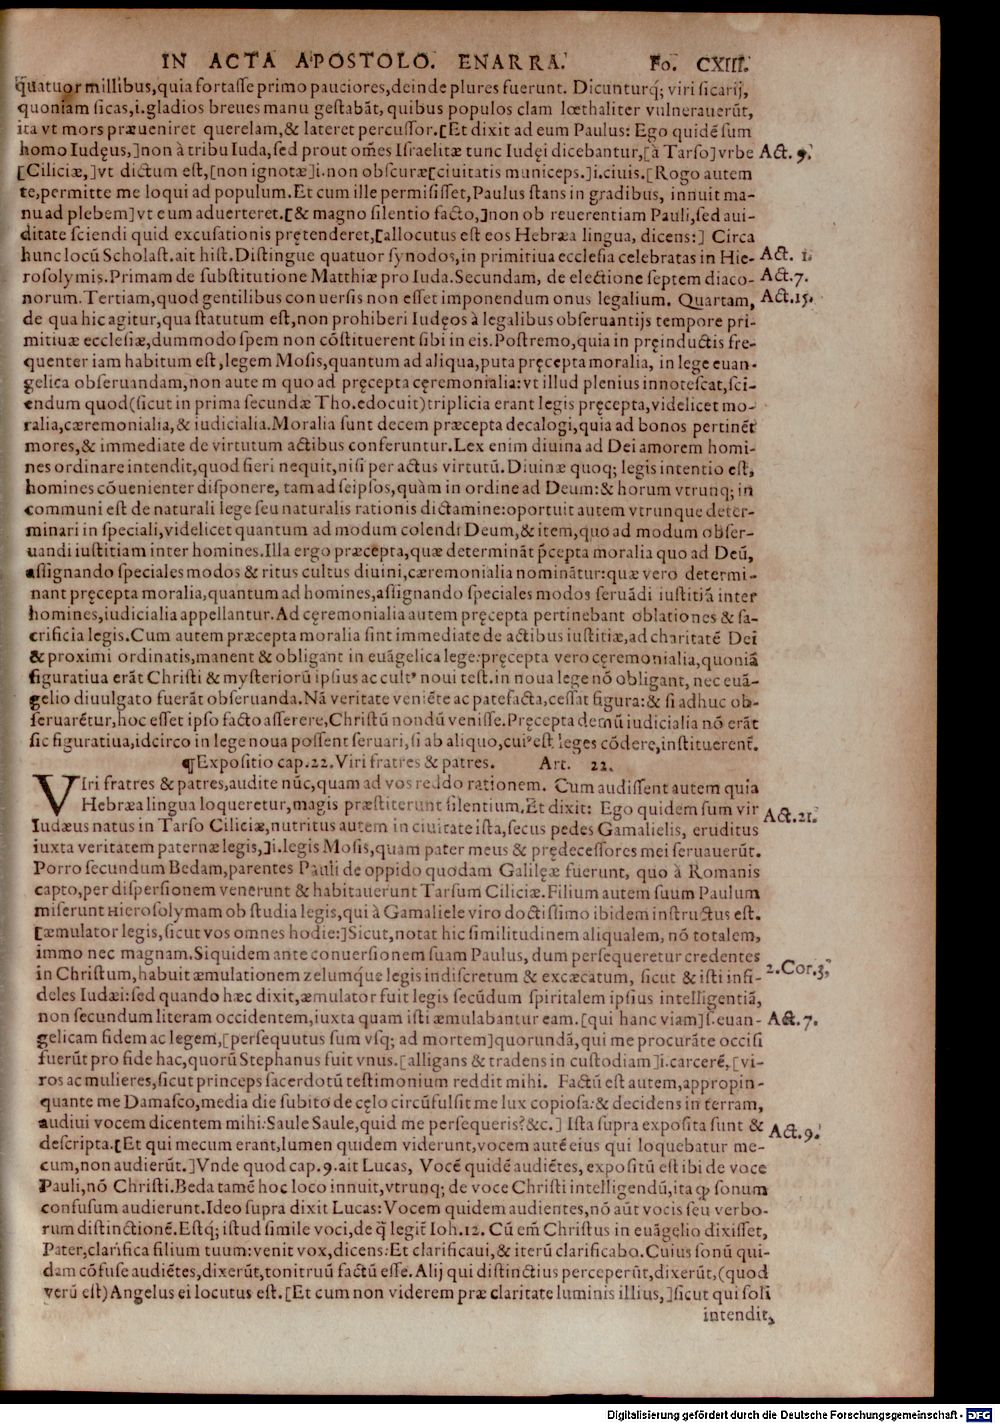 IN ACTA APOSTOLO. ENARRA. Fo. CXIII.
quatuor millibus, quia fortasse primo pauciores, deinde plures fuerunt. Dicunturq; viri sicarij,
quoniam sicas, i. gladios breues manu gestabāt, quibus populos clam lœthaliter vulnerauerūt,
ita vt mors præueniret querelam, & lateret percussor. [Et dixit ad eum Paulus: Ego quidē sum
homo Iudęus,] non à tribu Iuda, sed prout oēs Israelitæ tunc Iudęi dicebantur, [à Tarso] vrbe Act. 9.
[Ciliciæ,] vt dictum est, [non ignotæ] i. non obscuræ [ciuitatis municeps.] i. ciuis. [Rogo autem
te, permitte me loqui ad populum. Et cum ille permisisset, Paulus stans in gradibus, innuit ma-
nu ad plebem] vt eum aduerteret. [& magno silentio facto,] non ob reuerentiam Pauli, sed aui-
ditate sciendi quid excusationis prętenderet, [allocutus est eos Hebræa lingua, dicens:] Circa
hunc locū Scholast. ait hist. Distingue quatuor synodos, in primitiua ecclesia celebratas in Hie- Act. 1.
rosolymis. Primam de substitutione Matthiæ pro Iuda. Secundam, de electione septem diaco- Act. 7.
norum. Tertiam, quod gentilibus conuersis non esset imponendum onus legalium. Quartam, Act. 15.
de qua hic agitur, qua statutum est, non prohiberi Iudęos à legalibus obseruantijs tempore pri-
mitiuæ ecclesiæ, dummodo spem non cōstituerent sibi in eis. Postremo, quia in pręinductis fre-
quenter iam habitum est, legem Mosis, quantum ad aliqua, puta pręcepta moralia, in lege euan-
gelica obseruandam, non autem quo ad pręcepta cęremonialia: vt illud plenius innotescat, sci-
endum quod (sicut in prima secundæ Tho. edocuit) triplicia erant legis pręcepta, videlicet mo-
ralia, cæremonialia, & iudicialia. Moralia sunt decem præcepta decalogi, quia ad bonos pertinēt
mores, & immediate de virtutum actibus conferuntur. Lex enim diuina ad Dei amorem homi-
nes ordinare intendit, quod fieri nequit, nisi per actus virtutū. Diuinæ quoq; legis intentio est,
homines cōuenienter disponere, tam ad seipsos, quàm in ordine ad Deum: & horum vtrunq; in
communi est de naturali lege seu naturalis rationis dictamine: oportuit autem vtrunque deter-
minari in speciali, videlicet quantum ad modum colendi Deum, & item, quo ad modum obser-
uandi iustitiam inter homines. Illa ergo præcepta, quæ determināt p̄cepta moralia quo ad Deū,
assignando speciales modos & ritus cultus diuini, cæremonialia nominātur: quæ vero determi-
nant pręcepta moralia, quantum ad homines, assignando speciales modos seruādi iustitiā inter
homines, iudicialia appellantur. Ad cęremonialia autem pręcepta pertinebant oblationes & sa-
crificia legis. Cum autem præcepta moralia sint immediate de actibus iustitiæ, ad charitatē Dei
& proximi ordinatis, manent & obligant in euāgelica lege: pręcepta vero cęremonialia, quoniā
figuratiua erāt Christi & mysteriorū ipsius ac cultꝰ noui test. in noua lege nō obligant, nec euā-
gelio diuulgato fuerāt obseruanda. Nā veritate veniēte ac patefacta, cessat figura: & si adhuc ob-
seruarētur, hoc esset ipso facto asserere, Christū nondū venisse. Pręcepta demū iudicialia nō erāt
sic figuratiua, idcirco in lege noua possent seruari, si ab aliquo, cuiꝰ est leges cōdere, instituerent̄.
¶ Expositio cap. 22. Viri fratres & patres. Art. 22.
VIri fratres & patres, audite nūc, quam ad vos reddo rationem. Cum audissent autem quia
Hebræa lingua loqueretur, magis præstiterunt silentium. Et dixit: Ego quidem sum vir Act. 21.
Iudæus natus in Tarso Ciliciæ, nutritus autem in ciuitate ista, secus pedes Gamalielis, eruditus
iuxta veritatem paternæ legis,] i. legis Mosis, quam pater meus & prędecessores mei seruauerūt.
Porro secundum Bedam, parentes Pauli de oppido quodam Galilęæ fuerunt, quo à Romanis
capto, per dispersionem venerunt & habitauerunt Tarsum Ciliciæ. Filium autem suum Paulum
miserunt Hierosolymam ob studia legis, qui à Gamaliele viro doctissimo ibidem instructus est.
[æmulator legis, sicut vos omnes hodie:] Sicut, notat hic similitudinem aliqualem, nō totalem,
immo nec magnam. Siquidem ante conuersionem suam Paulus, dum persequeretur credentes
in Christum, habuit æmulationem zelumq́ue legis indiscretum & excæcatum, sicut & isti infi- 2. Cor. 3.
deles Iudæi: sed quando hæc dixit, æmulator fuit legis secūdum spiritalem ipsius intelligentiā,
non secundum literam occidentem, iuxta quam isti æmulabantur eam. [qui hanc viam] s. euan- Act. 7.
gelicam fidem ac legem, [persequutus sum vsq; ad mortem] quorundā, qui me procurāte occisi
fuerūt pro fide hac, quorū Stephanus fuit vnus. [alligans & tradens in custodiam] i. carcerē, [vi-
ros ac mulieres, sicut princeps sacerdotū testimonium reddit mihi. Factū est autem, appropin-
quante me Damasco, media die subito de cęlo circūfulsit me lux copiosa: & decidens in terram,
audiui vocem dicentem mihi: Saule Saule, quid me persequeris? &c.] Ista supra exposita sunt & Act. 9.
descripta. [Et qui mecum erant, lumen quidem viderunt, vocem autē eius qui loquebatur me-
cum, non audierūt.] Vnde quod cap. 9. ait Lucas, Vocē quidē audiētes, expositū est ibi de voce
Pauli, nō Christi. Beda tamē hoc loco innuit, vtrunq; de voce Christi intelligendū, ita ꝙ sonum
confusum audierunt. Ideo supra dixit Lucas: Vocem quidem audientes, nō aūt vocis seu verbo-
rum distinctionē. Estq; istud simile voci, de q̄ legit̄ Ioh. 12. Cū em̄ Christus in euāgelio dixisset,
Pater, clarifica filium tuum: venit vox, dicens: Et clarificaui, & iterū clarificabo. Cuius sonū qui-
dam cōfuse audiētes, dixerūt, tonitruū factū esse. Alij qui distinctius perceperūt, dixerūt, (quod
verū est) Angelus ei locutus est. [Et cum non viderem præ claritate luminis illius,] sicut qui soli
intendit,
Digitalisierung gefördert durch die Deutsche Forschungsgemeinschaft - DFG